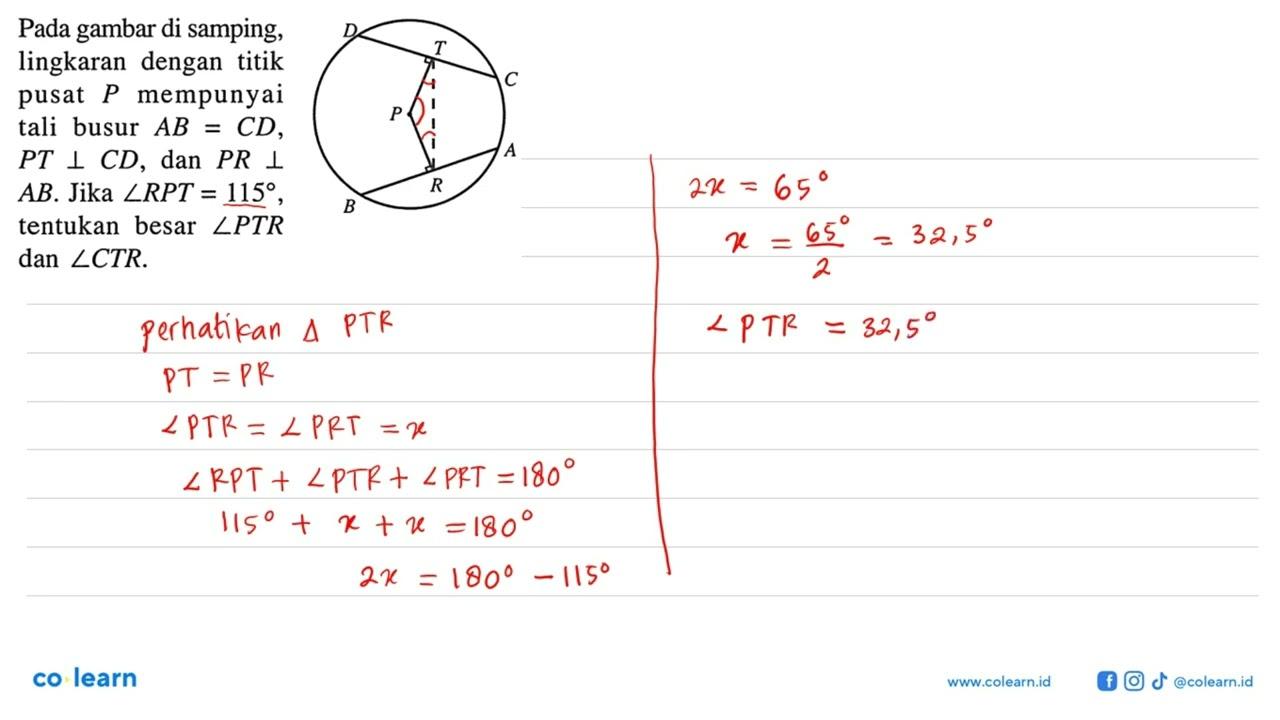 Pada gambar di samping,
lingkaran dengan titik
pusat P mempunyai
tali busur AB = CD,
PT ⊥ CD, dan PR ⊥
AB. Jika ∠RPT = 115°,
tentukan besar ∠PTR
dan ∠CTR.
D
T
C
P
A
R
B
perhatikan Δ PTR
PT = PR
∠PTR = ∠PRT = x
∠RPT + ∠PTR + ∠PRT = 180°
115° + x + x = 180°
2x = 180° - 115°
2x = 65°
x = 65°/2 = 32,5°
∠PTR = 32,5°
co learn
www.colearn.id
@colearn.id